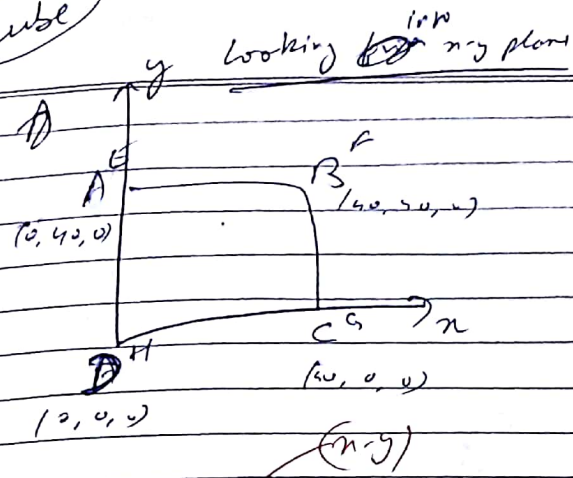 cube
Looking into x-y plane
y
A
E
A
B F
(0, 40, 0)
(40, 40, 0)
x
C G
D H
(40, 0, 0)
(0, 0, 0)
(x-y)